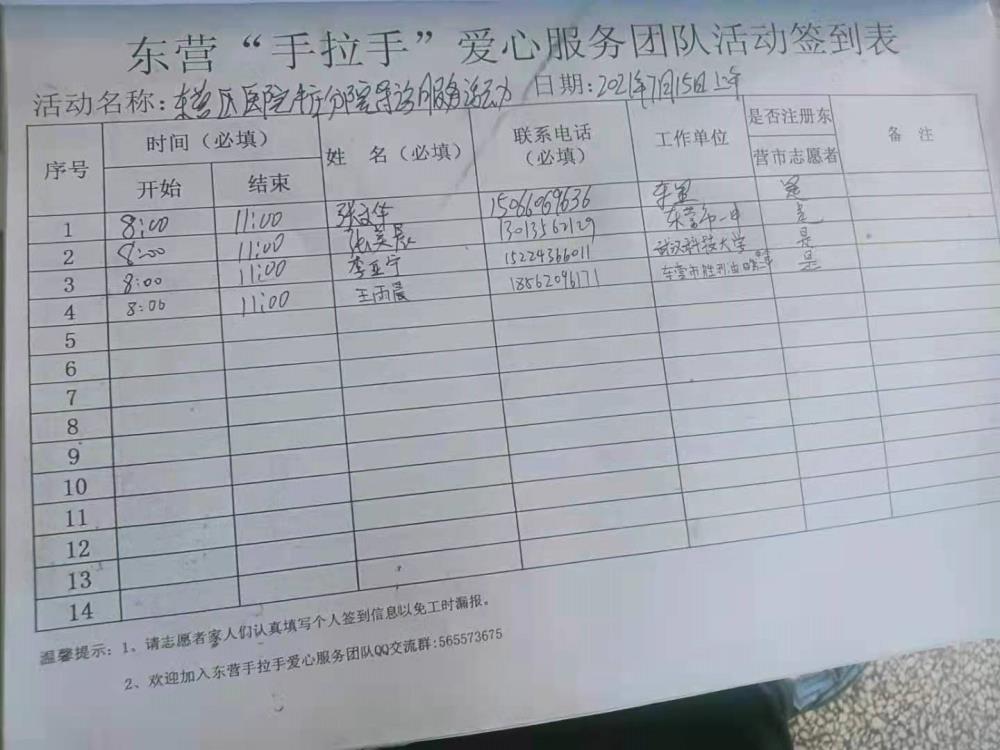 东营“手拉手”爱心服务团队活动签到表
活动名称: 东营区医院 分院导诊服务活动 日期: 2021年7月15日上午
序号 时间（必填） 姓 名（必填） 联系电话（必填） 工作单位 是否注册东营市志愿者 备 注
开始 结束
1 8:00 11:00 张文华 15066069636 东营 是
2 8:00 11:00 张美晨 13013562129 东营市一中 是
3 8:00 11:00 李亚宁 15224366011 武汉科技大学 是
4 8:00 11:00 王雨晨 18562096171 东营市胜利 是
5
6
7
8
9
10
11
12
13
14
温馨提示: 1、请志愿者家人们认真填写个人签到信息以免工时漏报。
2、欢迎加入东营手拉手爱心服务团队QQ交流群:565573675